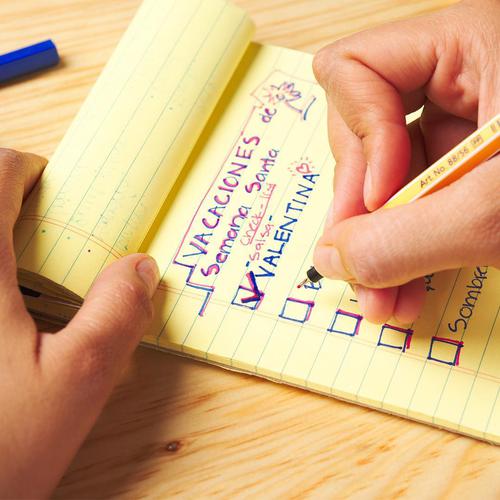 VACACIONES de
Semana Santa
check-list
-Salsa-
VALENTINA
Sombre
Art. No. 88/56